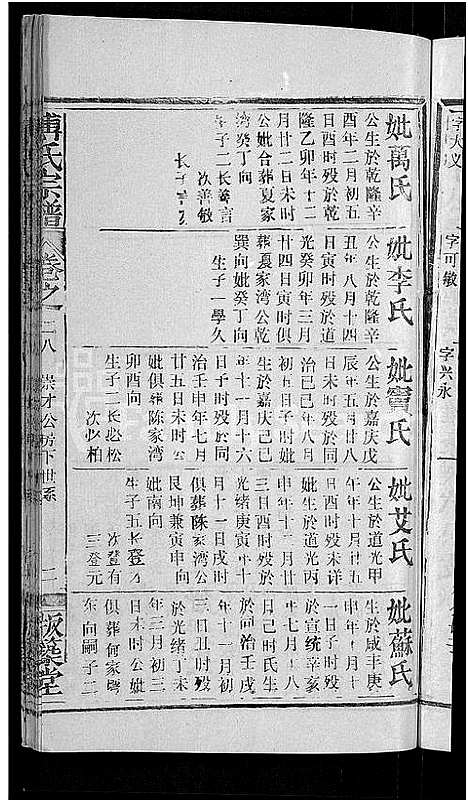 字大义
字可敏
字兴永
妣萬氏
公生於乾隆辛
酉年二月初五
日酉時殁於乾
隆乙卯年十二
月廿二日未時
公妣合葬夏家
湾癸丁向
生子二长善言
次善敏
妣李氏
公生於乾隆辛
丑年八月十四
日寅時殁於道
光癸卯年三月
廿四日寅時俱
葬夏家湾公乾
巽向妣癸丁向
生子一學久
妣竇氏
公生於嘉庆戊
辰年五月廿八
日未時殁於同
治己巳年八月
初五日子時妣
生於嘉庆己巳
年十一月十六
日子時殁於同
治壬申年七月
廿五日末時公
妣俱葬陈家湾
卯酉向
生子二长必松
次必柏
妣艾氏
公生於道光甲
午年十月廿五
日酉時殁未详
妣生於道光丙
申年十二月廿
三日酉時殁於
光緒庚寅年十
月十一日戌時
俱葬陈家湾公
艮坤兼寅申向
妣南向
生子五长登才
次登有
三登元
妣蘇氏
生於咸丰庚
申年
一日子時殁
於宣统辛亥
年七月十八
日己時氏生
於同治壬戌
年十一月初
三日丑時殁
於光緒丁未
年三月初三
日未時公妣
俱葬何家壪
东向嗣子二
傅氏宗譜
卷之一
二八
崇才公房下世系
二
版築堂